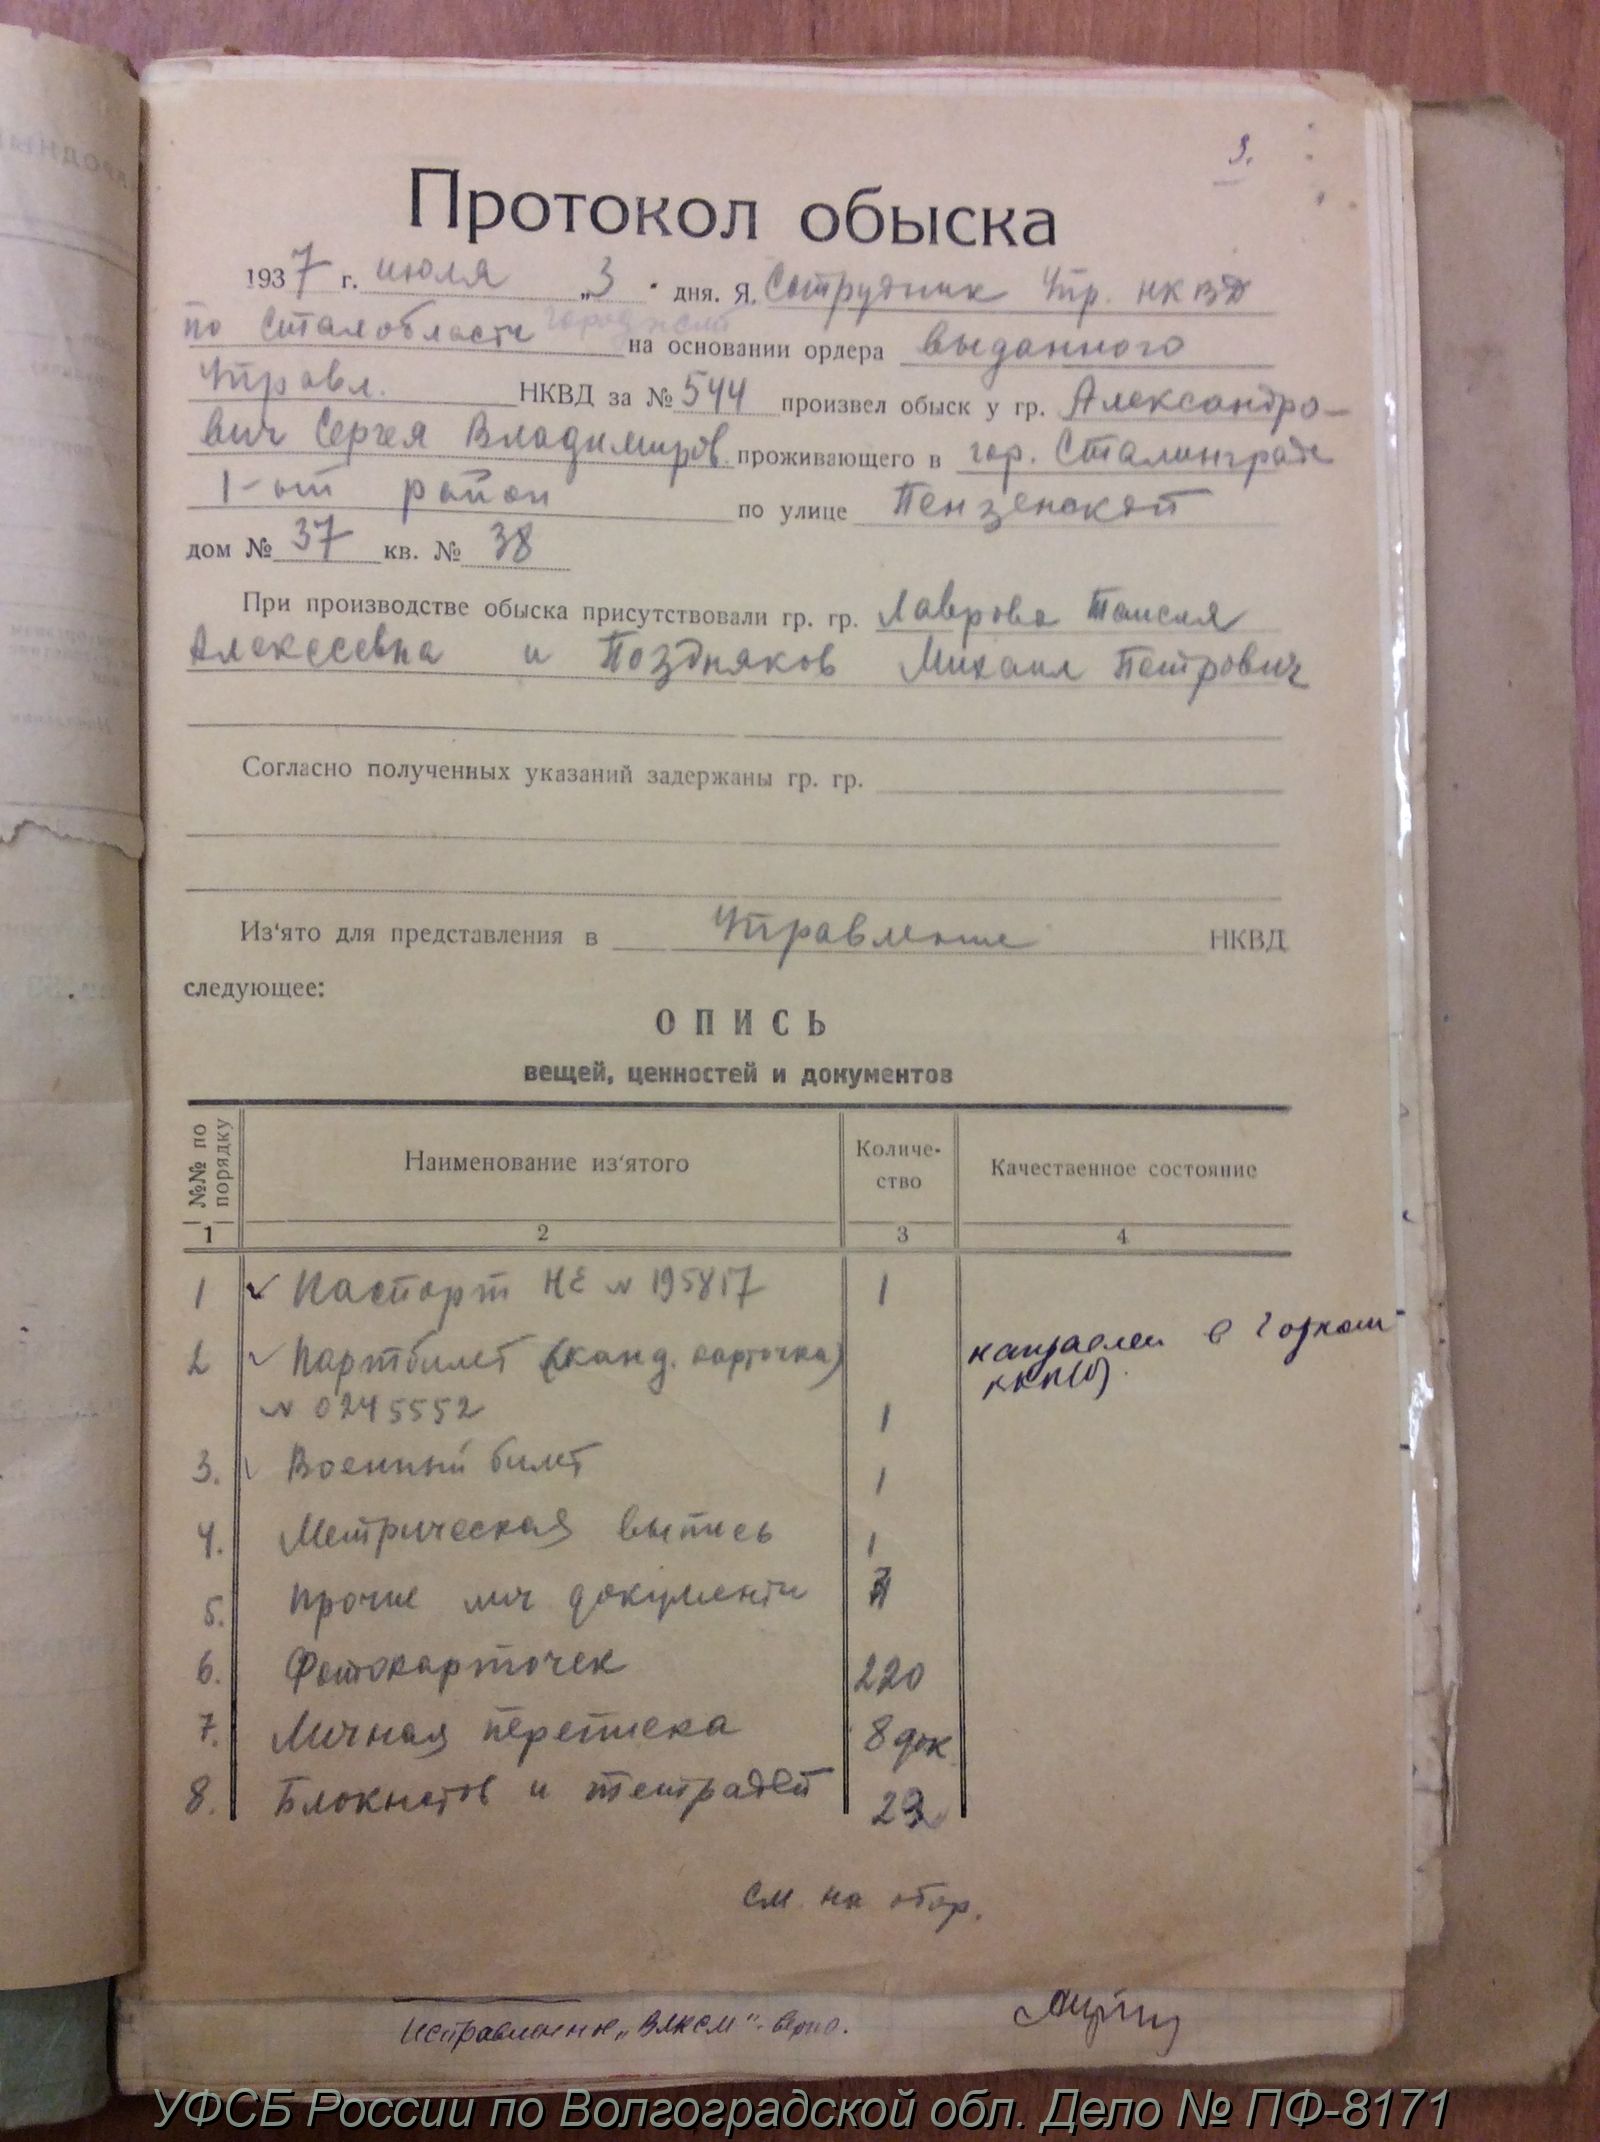 9.
Протокол обыска
1937 г. июля „3" дня. Я, Сотрудник Упр. НКВД
по Сталобласти на основании ордера выданного
Управл. НКВД за № 544 произвел обыск у гр. Александро-
вич Сергея Владимиров. проживающего в гор. Сталинграде
1-ый район по улице Пензенской
дом № 37 кв. № 38
При производстве обыска присутствовали гр. гр. Лаврова Таисия
Алексеевна и Поздняков Михаил Петрович
Согласно полученных указаний задержаны гр. гр.
Из‘ято для представления в Управление НКВД
следующее:
ОПИСЬ
вещей, ценностей и документов
№№ по порядку Наименование из‘ятого Количе-ство Качественное состояние
1 2 3 4
1 Паспорт НЕ № 195817 1
2 Партбилет (канд. карточка) направлен в Горком
№ 0245552 1 ВКП(б).
3. Военный билет 1
4. Метрическая выпись 1
5. Прочие лич документы
6. Фотокарточек 220
7. Личная переписка 8 док
8. Блокнотов и тетрадей
см. на обор.
исправленное „ВЛКСМ" верно.
УФСБ России по Волгоградской обл. Дело № ПФ-8171